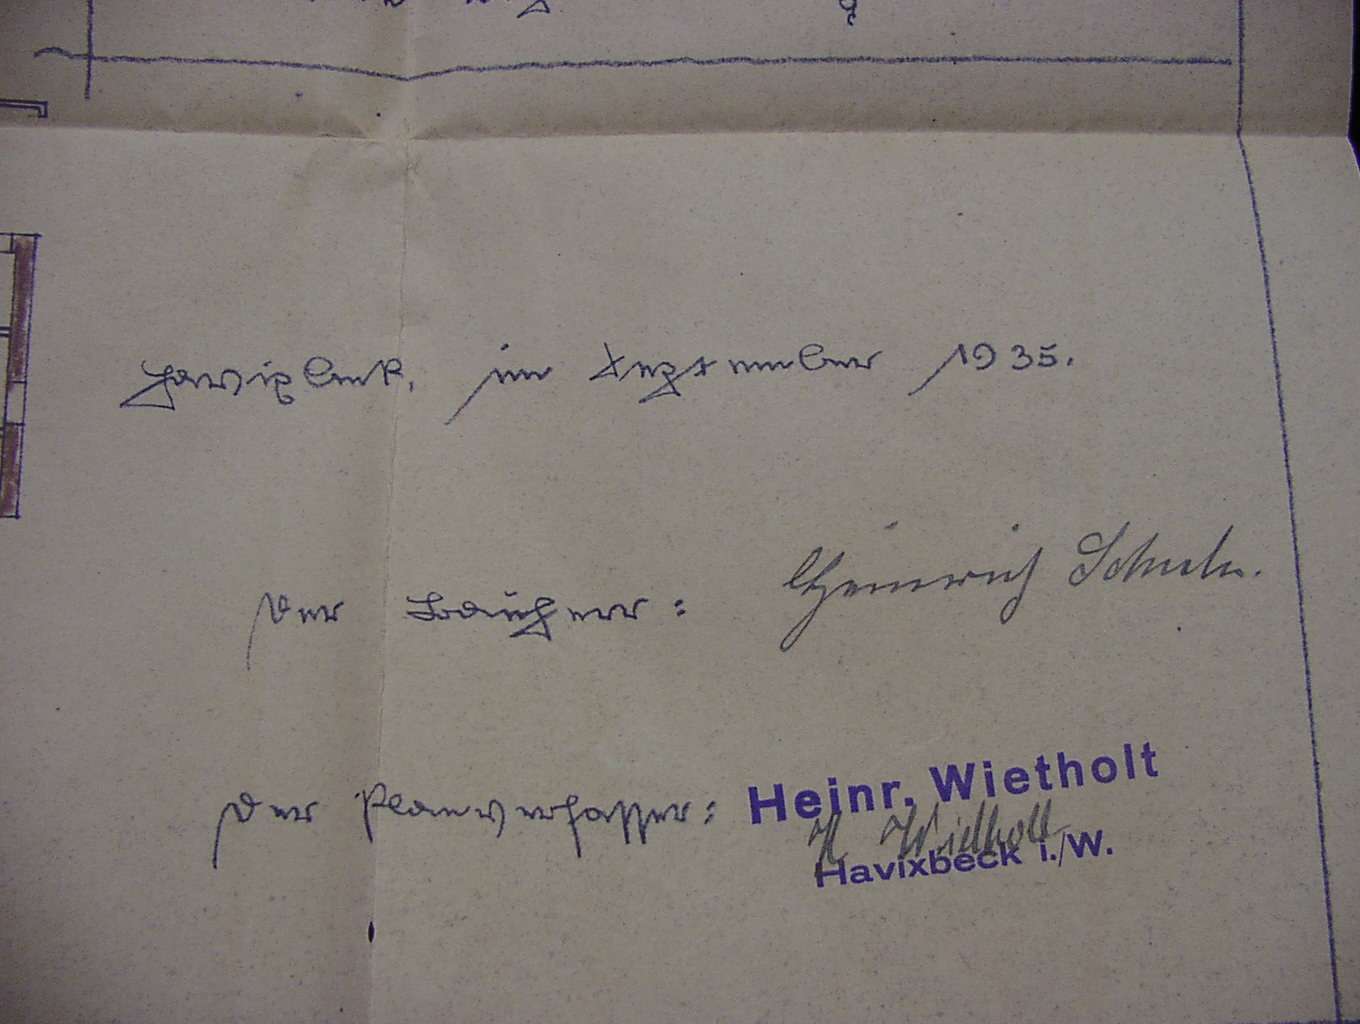 Havixbeck, im September 1935.
Der Bauherr: Heinrich
Der Planverfasser: Heinr. Wietholt
H. Wietholt
Havixbeck i./W.